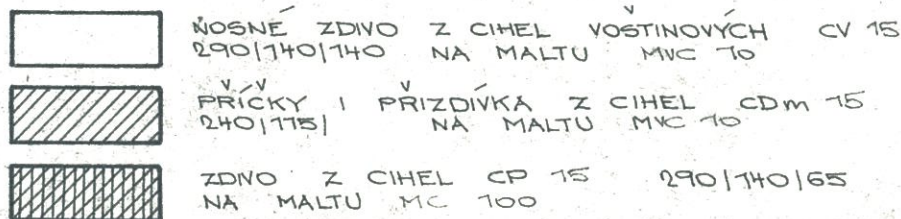 NOSNÉ ZDIVO Z CIHEL VOŠTINOVÝCH CV 15
290/140/140 NA MALTU MVC 10
PŘÍČKY I PŘIZDÍVKA Z CIHEL CDm 15
240/115/ NA MALTU MVC 10
ZDIVO Z CIHEL CP 15 290/140/65
NA MALTU MC 100